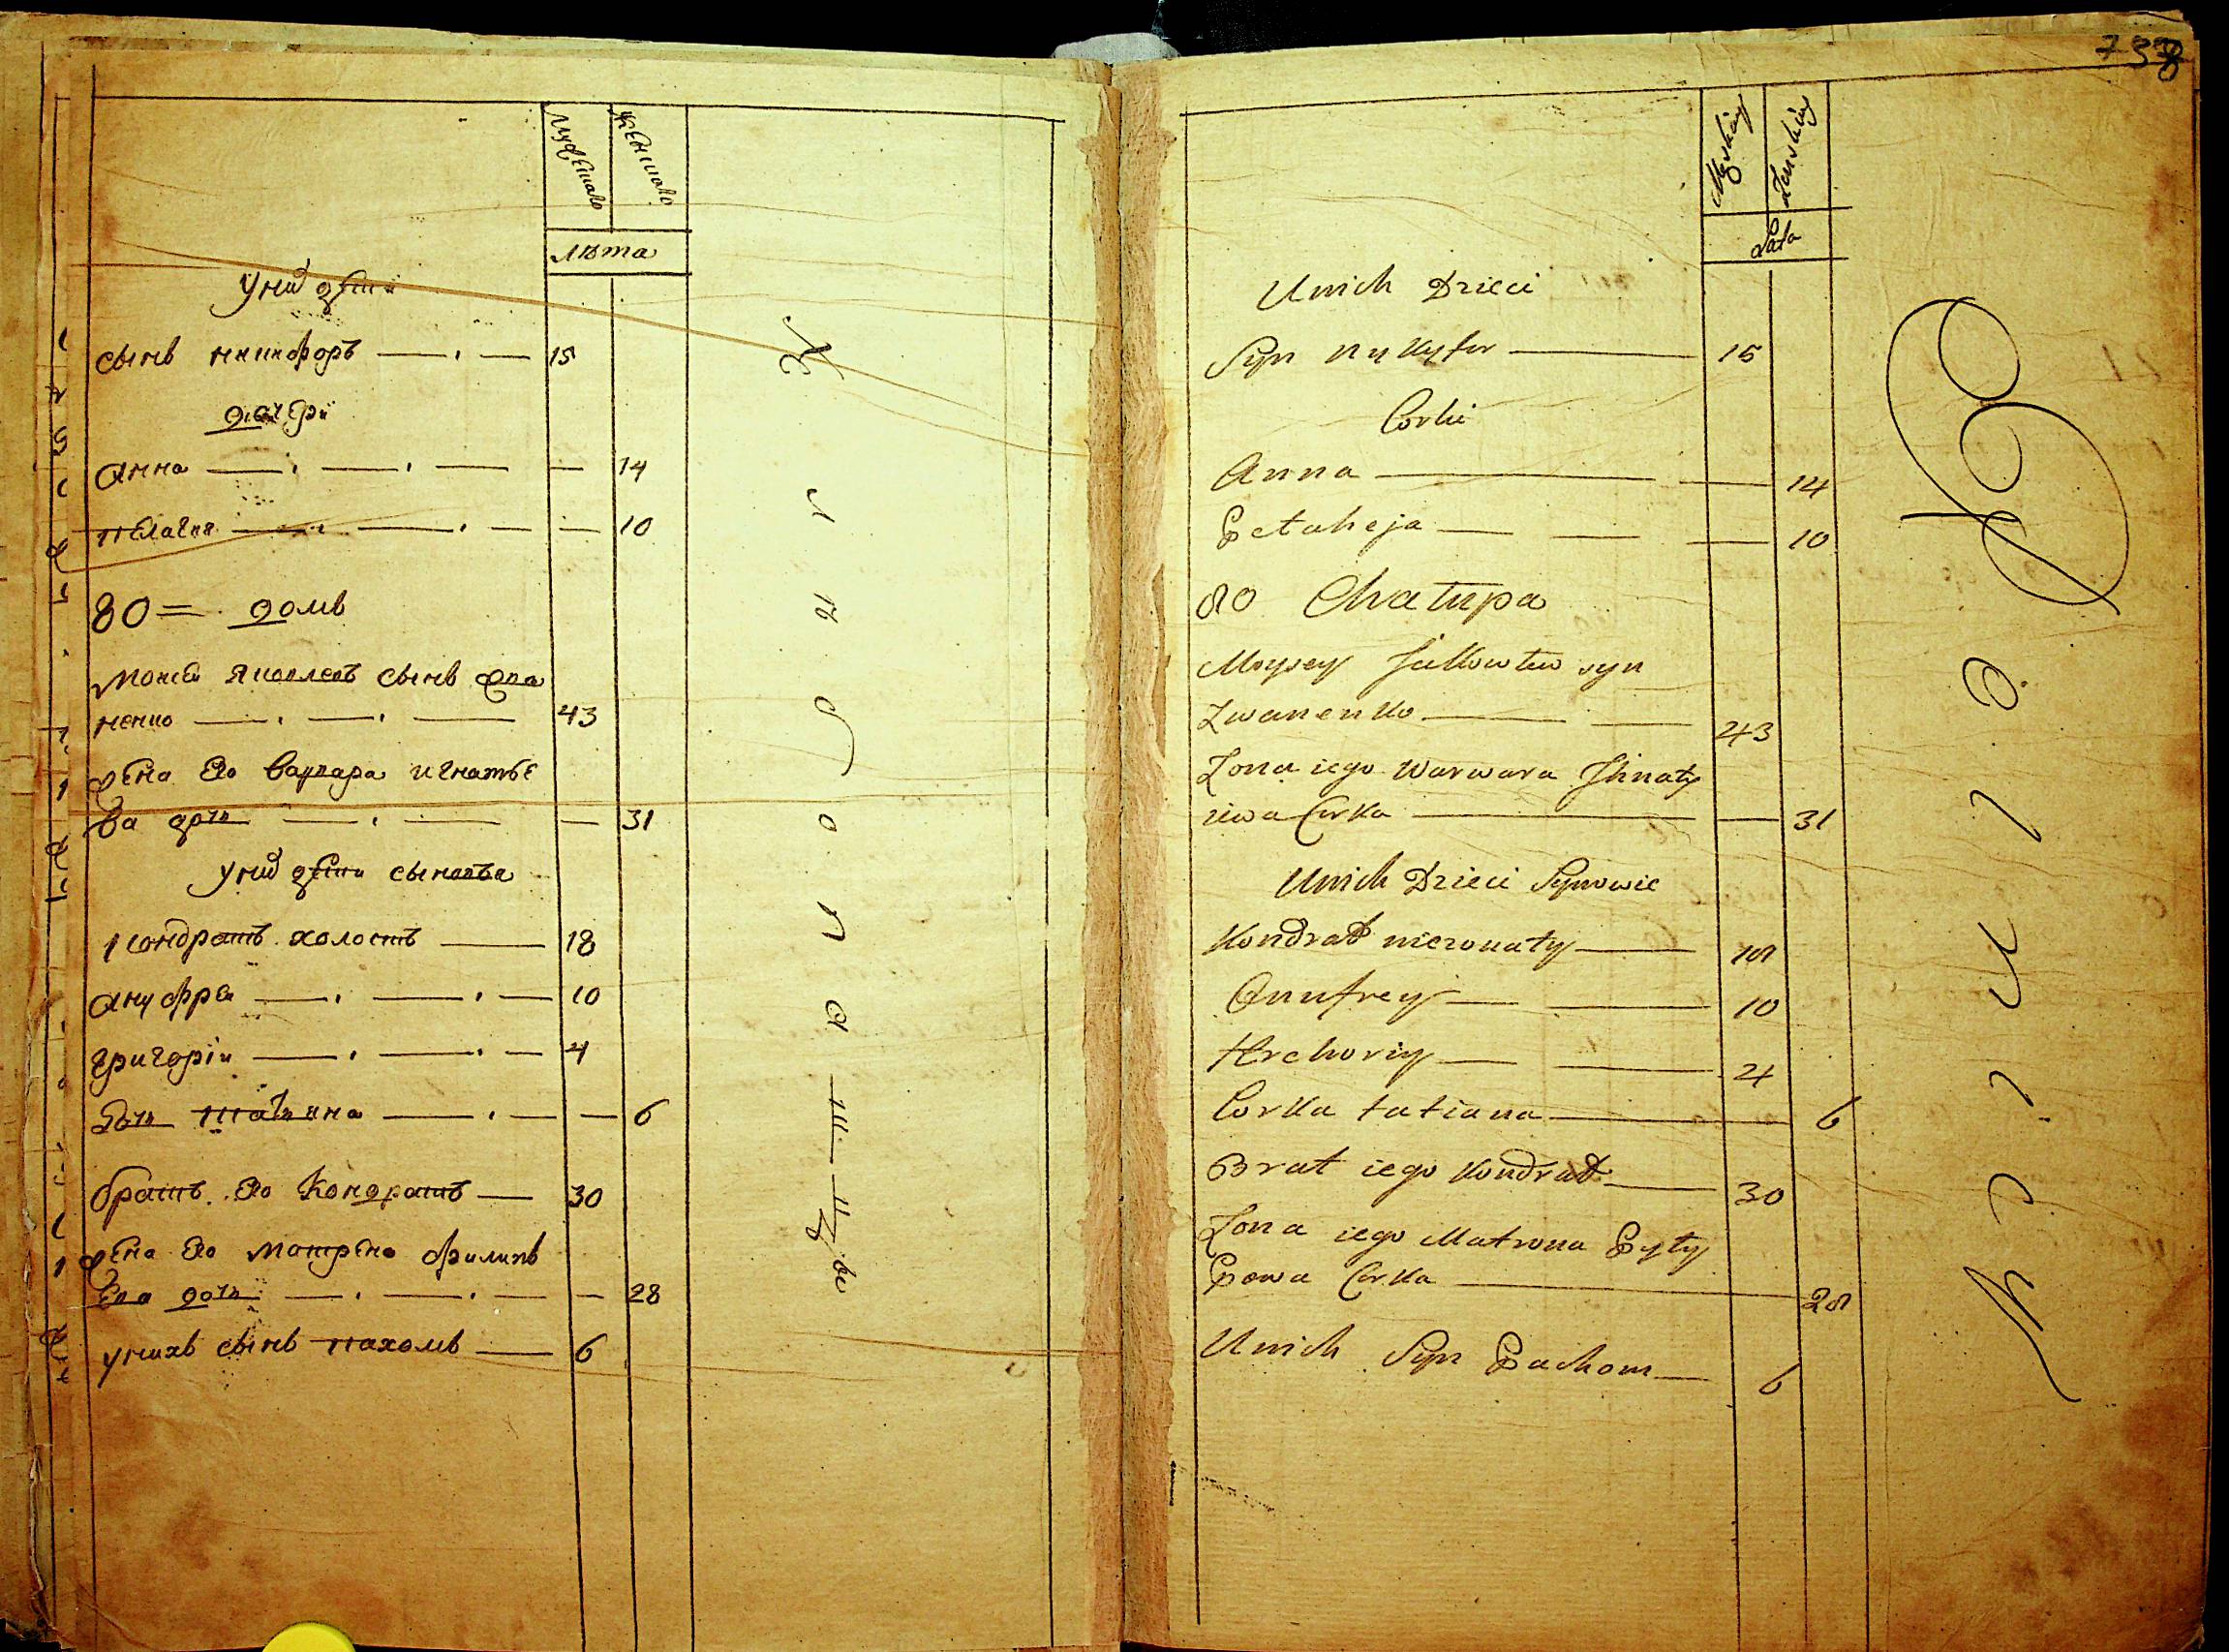 738
Мужеска
Женска
лѣта
У них дѣти
сынъ никифоръ 15
дочери
Анна 14
пелагия 10
80 = домъ
Моисей Яковлевъ сынъ
ненко 43
жена его варвара игнатье
ва дочь 31
У них дѣти сыновья
кондратъ холостъ 18
ануфрей 10
григорій 4
Дочь татьяна 6
братъ его Кондратъ 30
жена его Матрена филипъ
ева дочь 28
у нихъ сынъ пахомъ 6
Męskiey
Żenskiey
Lata
Unich Dzieci
Syn Nykyfor 15
Corki
Anna 14
Pelaheja 10
80 Chatupa
Moysey Jakowlew syn
Zwanenko 43
Zona iego Warwara Ihnaty
iewa Corka 31
Unich Dzieci Synowie
Kondrat niezonaty 18
Onufrey 10
Hrehoriy 4
Corka tatiana 6
Brat iego Kondrat 30
Zona iego Matrona Pyly
Powa Corka 28
Unich Syn Pachom 6